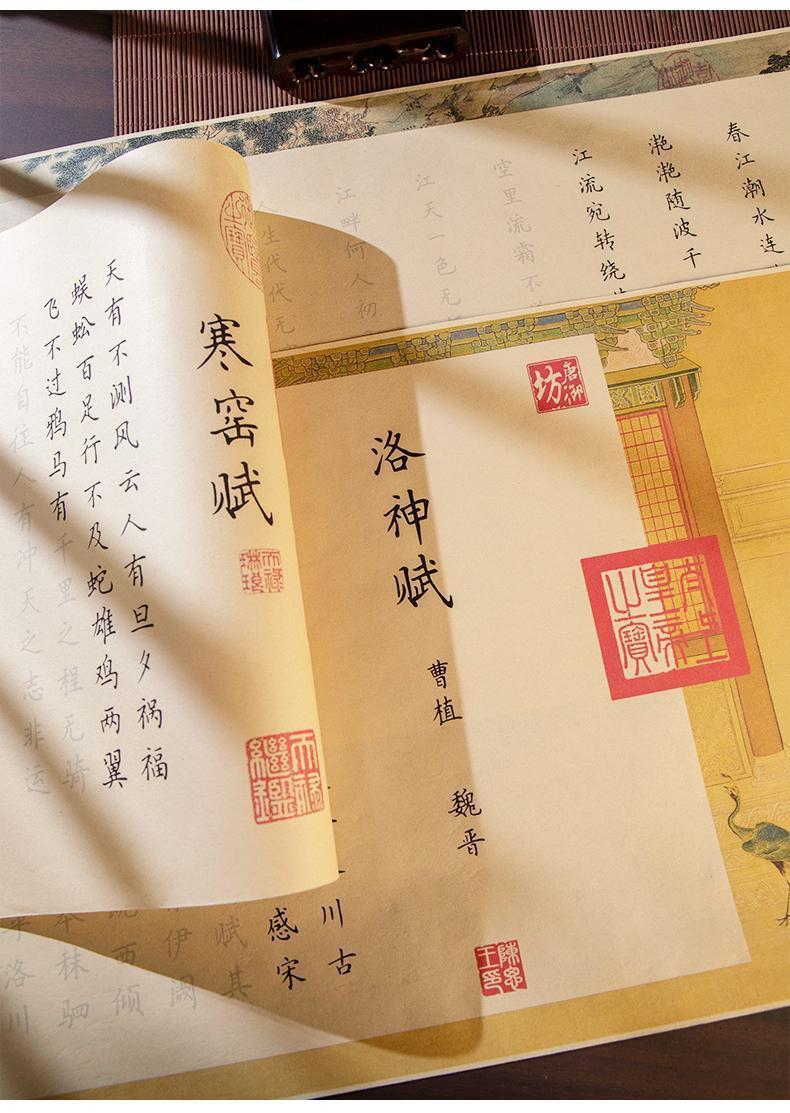 春江潮水连
滟滟随波千
江流宛转绕
空里流霜不
江天一色无
江畔何人初
人生代代无
寒窑赋
天禄琳琅
天禄繼鑑
天有不测风云人有旦夕祸福
蜈蚣百足行不及蛇雄鸡两翼
飞不过鸦马有千里之程无骑
不能自往人有冲天之志非运
唐御坊
洛神赋
曹植
魏晋
陳思王印
川古
感宋
赋其
伊阙
西倾
秣驷
洛川